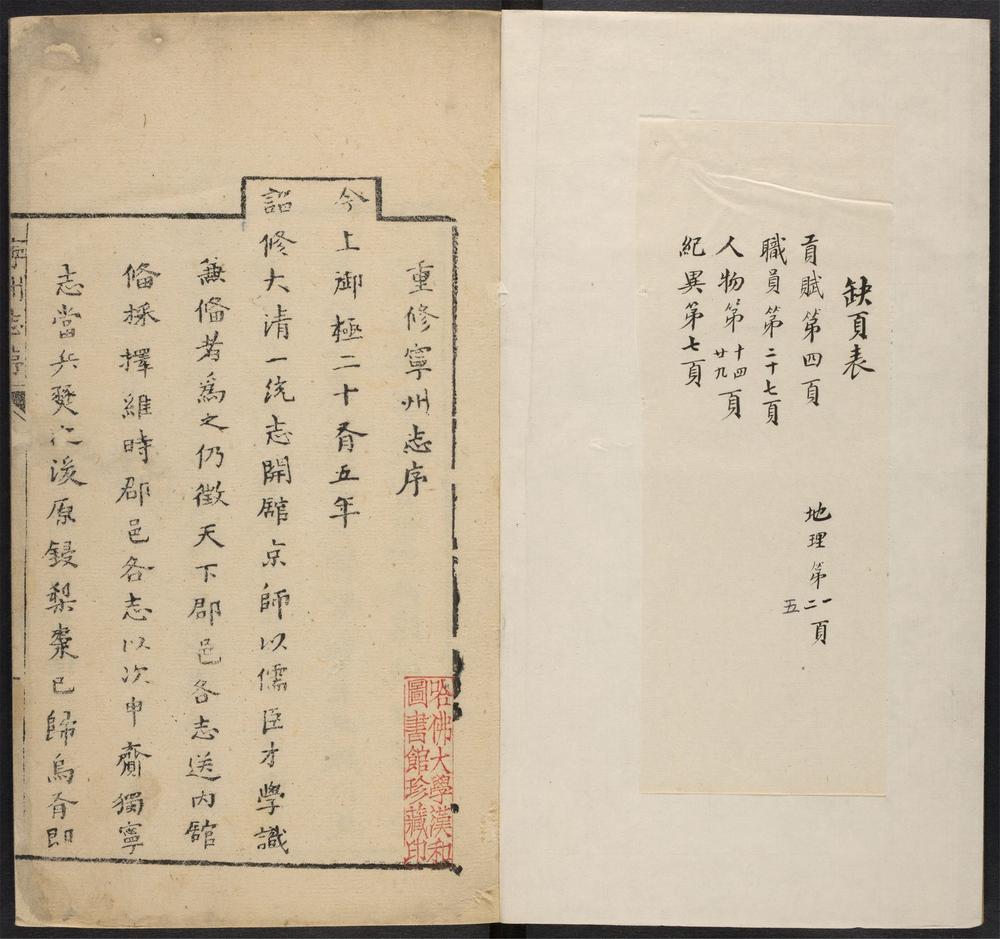 缺頁表
貢賦第四頁
地理第一二五頁
職員第二十七頁
人物第十四廿九頁
紀異第七頁
重修寧州志序
今上御極二十有五年
詔修大清一統志開舘京師以儒臣才學識
兼俻者為之仍徵天下郡邑各志送內舘
俻採擇維時郡邑各志以次申齎獨寧
志當兵燹之後原鋟梨棗已歸烏有即
寧州志序
哈佛大學漢和
圖書館珍藏印